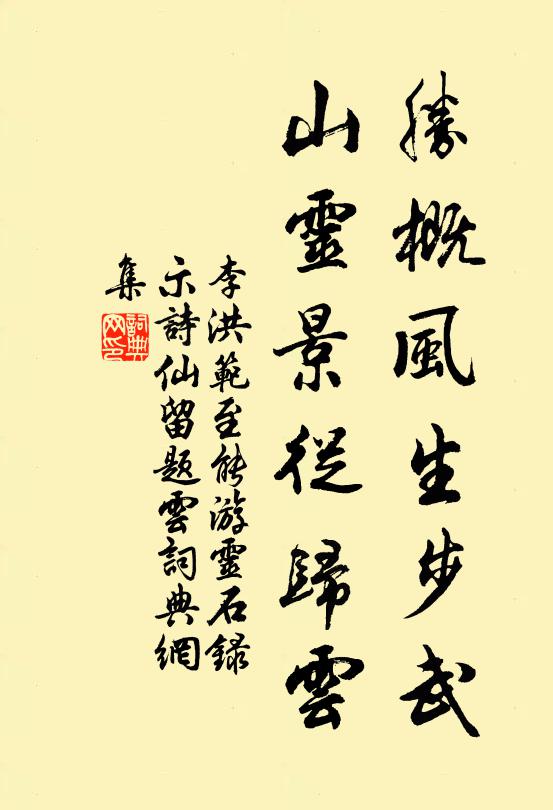 勝概風生步武
山靈景從歸雲
李洪範至能游靈石錄
示詩仙留題雲詞典網
集
詞典网印